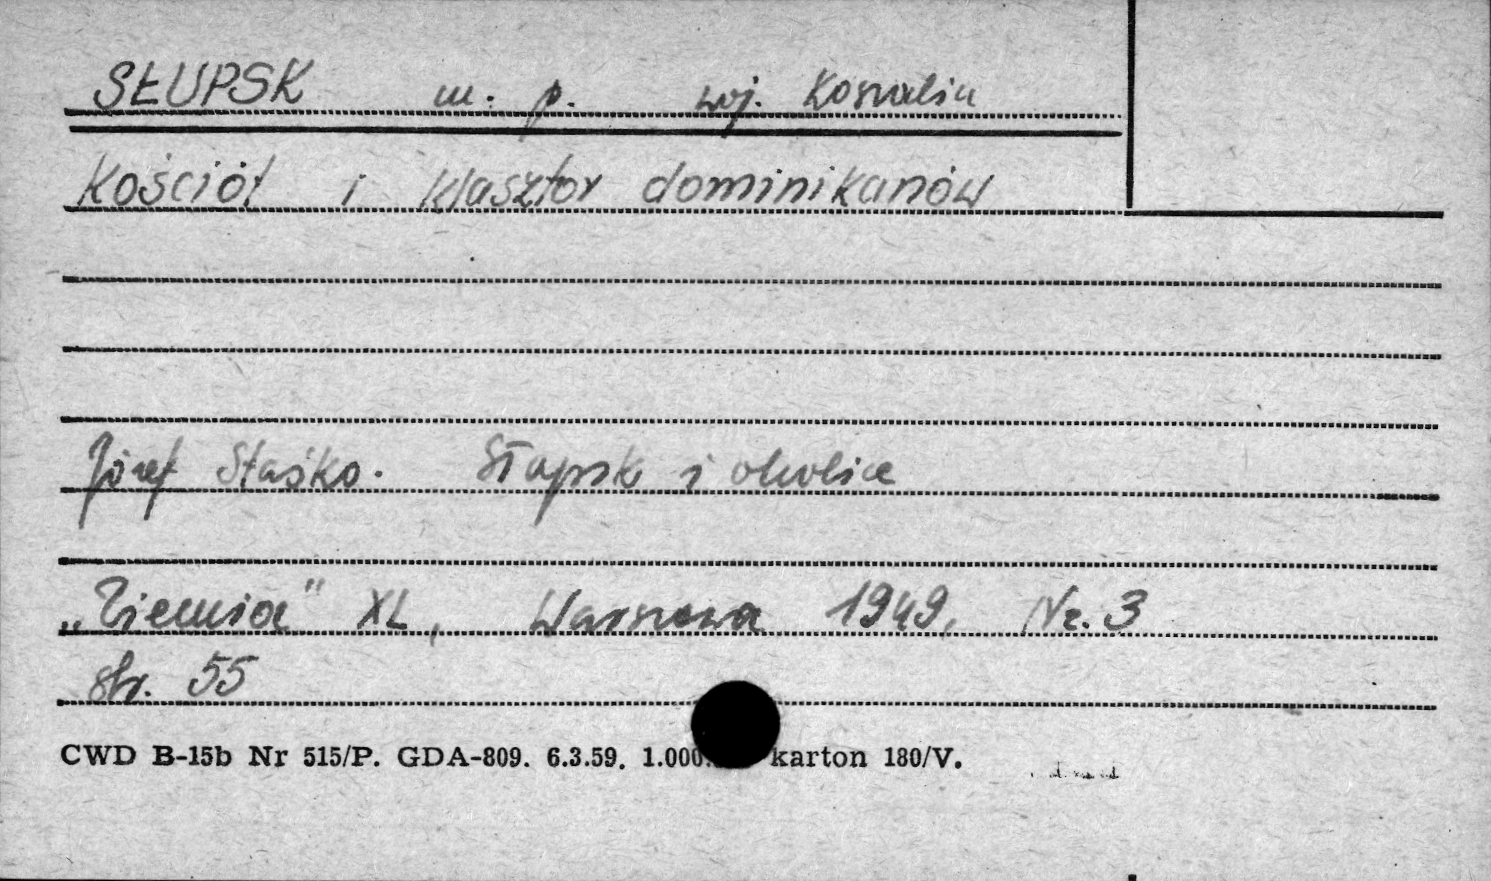 SŁUPSK m. p. woj. Koszalin
Kościół i klasztor dominikanów
Józef Staśko. Słupsk i okolice
„Ziemia" XL, Warszawa 1949, Nr. 3
str. 55
CWD B-15b Nr 515/P. GDA-809. 6.3.59. 1.000. karton 180/V.